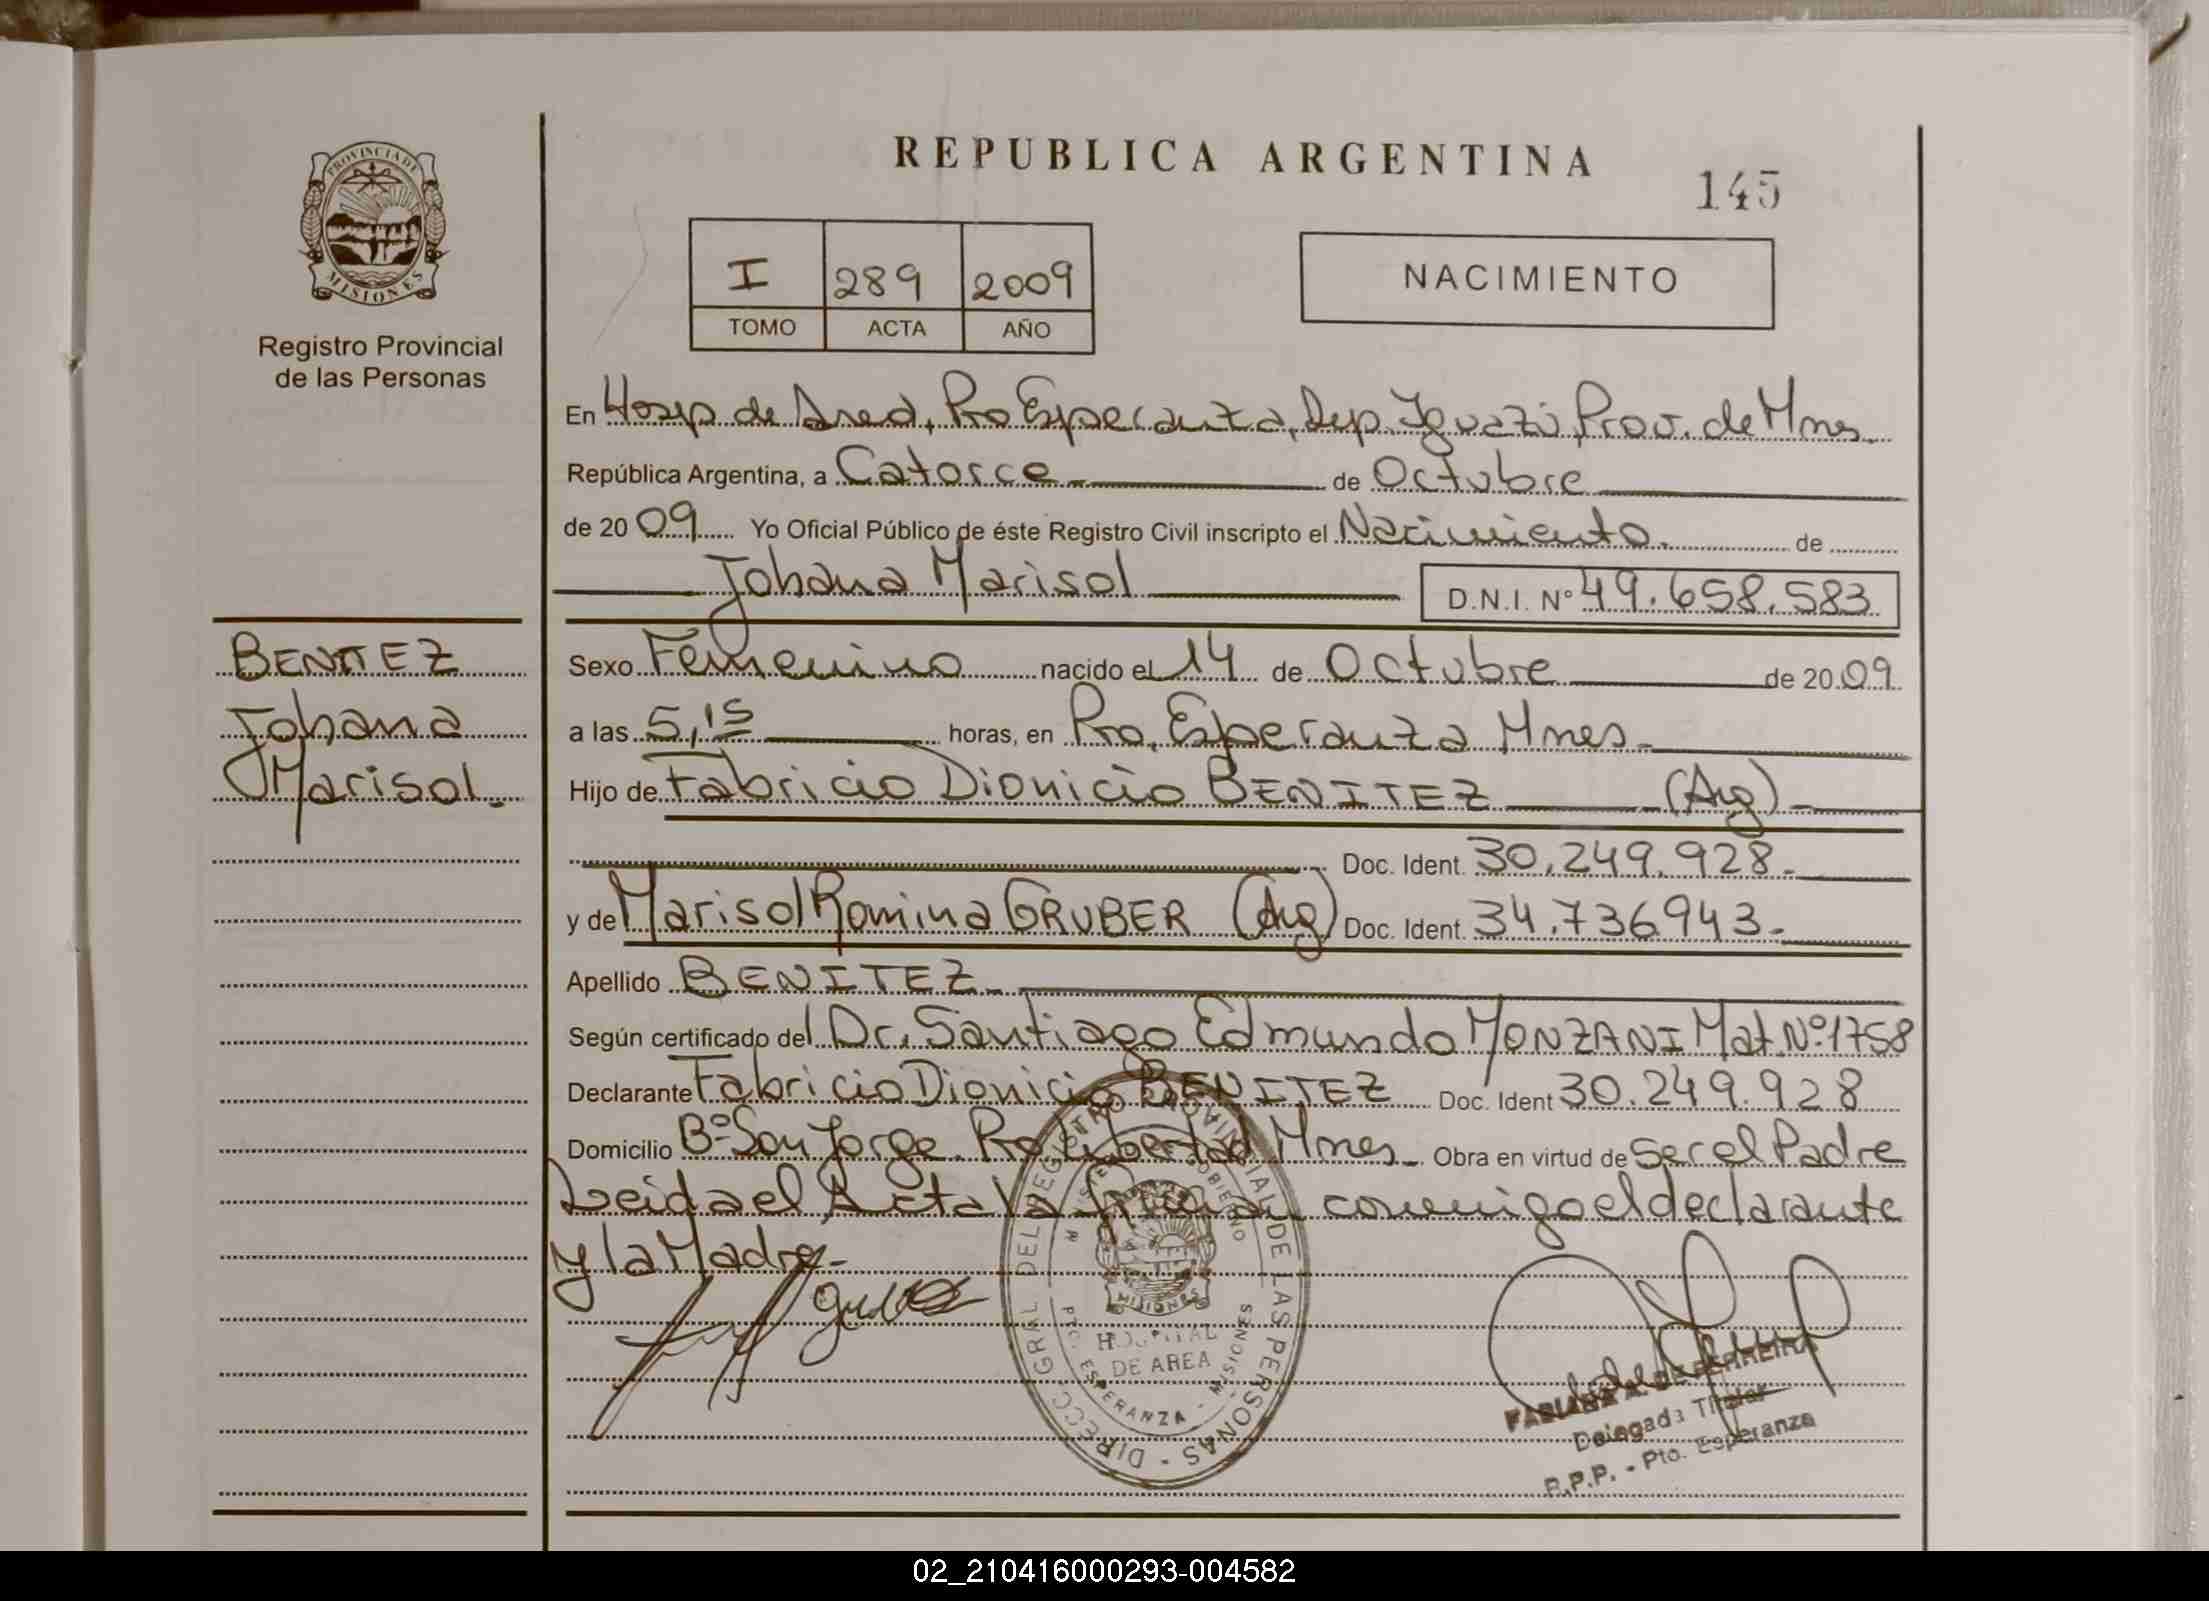 REPUBLICA ARGENTINA
145
PROVINCIA DE
MISIONES
Registro Provincial
de las Personas
I 289 2009
TOMO ACTA AÑO
NACIMIENTO
En Hosp. de Area, Pto Esperanza, Dep. Iguazú, Prov. de Mnes.
República Argentina, a Catorce de Octubre
de 2009 Yo Oficial Público de éste Registro Civil inscripto el Nacimiento. de
Johana Marisol D.N.I. Nº 49.658.583
BENITEZ
Johana
Marisol.
Sexo Femenino nacido el 14 de Octubre de 2009
a las 5,15 horas, en Pto. Esperanza Mnes-
Hijo de Fabricio Dionicio BENITEZ (Arg)-
Doc. Ident. 30.249.928-
y de Marisol Romina GRUBER (Arg) Doc. Ident. 34.736943-
Apellido BENITEZ-
Según certificado del Dr. Santiago Edmundo MONZANI Mat. Nº 1758
Declarante Fabricio Dionicio BENITEZ Doc. Ident 30.249.928
Domicilio Bº San Jorge. Pto Libertad Mnes- Obra en virtud de ser el Padre
Leida el Acta la firman conmigo el declarante
y la Madre-
DIRECC. GRAL. DEL REGISTRO PROVINCIAL DE LAS PERSONAS -
MISIONES
HOSPITAL
DE AREA
PTO. ESPERANZA - MISIONES
FABIANA A. DE FERREIRA
Delegada Titular
R.P.P. - Pto. Esperanza
02_210416000293-004582